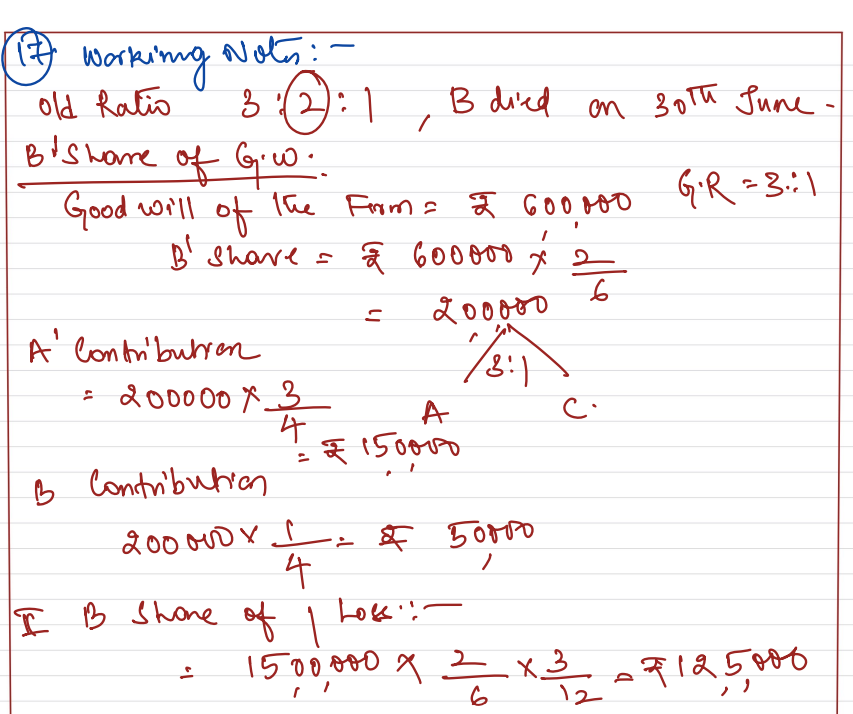 17. Working Notes:-
Old Ratio 3:2:1, B died on 30th June-
B's Share of G.W.
Goodwill of the Firm = ₹ 600000 G.R = 3:1
B' share = ₹ 600000 × 2/6
= 200000
A' Contribution 3:1
= 200000 × 3/4 A C.
= ₹ 150000
B Contribution
200000 × 1/4 = ₹ 50000
I B Share of Loss:-
= 1500,000 × 2/6 × 3/12 = ₹ 125000